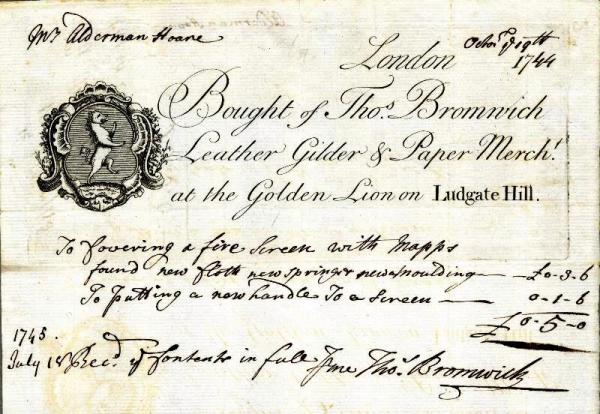 Mr Alderman Hoare
London Octor ye 19th
1744
Bought of Thos. Bromwich
Leather Gilder & Paper Mercht.
at the Golden Lion on Ludgate Hill.
To Covering a fire Screen with Mapps
found new Cloth new springs & new moulding — £0-3-6
To Putting a new handle To a Screen — 0-1-6
£0-5-0
1745
July 18 Recd. ye Contents in full Thos. Bromwich